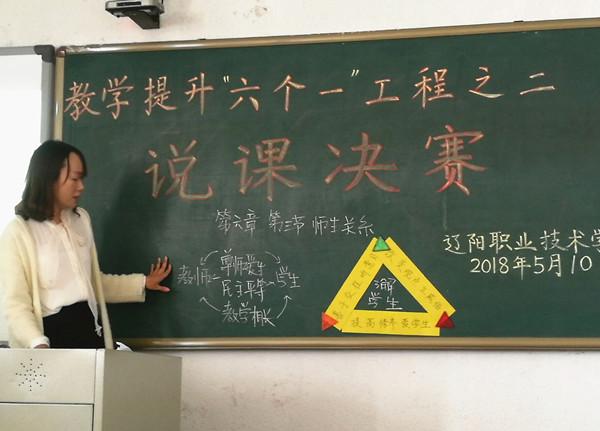 教学提升"六个一"工程之二
说课决赛
第六章 第三节 师生关系
辽阳职业技术学
2018年5月10
尊师爱生
教师 民主平等 学生
教学相长
了解
学生
提高修养爱学生